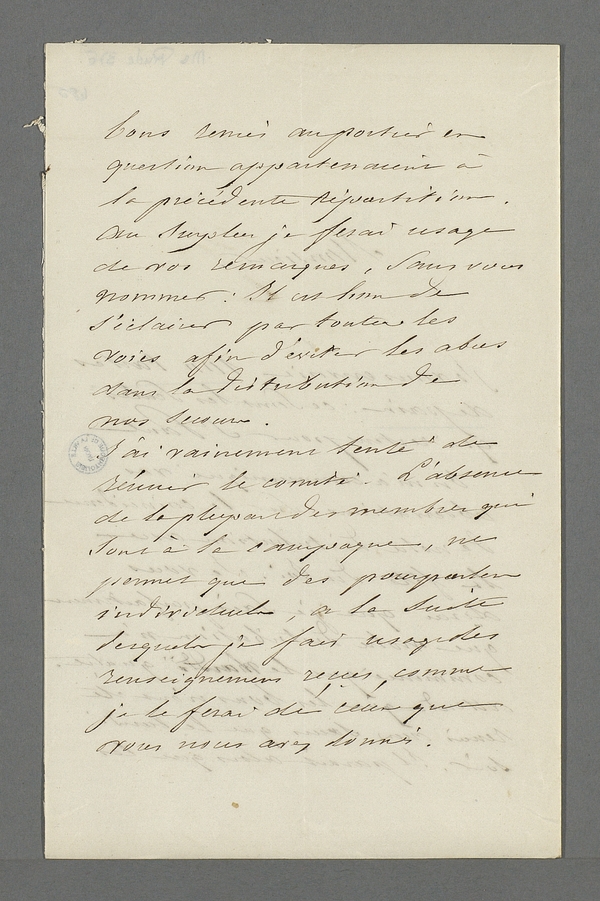 bons remis au portier en
question appartenaient à
la précédente répartition.
Au surplus je ferai usage
de vos remarques, sans vous
nommer: Il est bon de
s'éclairer par toutes les
voies afin d'éviter les abus
dans la distribution de
nos secours.
J'ai vainement tenté de
réunir le comité. L'absence
de la plupart des membres qui
sont à la campagne, ne
permet que des pourparlers
individuels, à la suite
desquels je fais usage des
renseignemens reçus, comme
je le ferai de ceux que
vous nous avez donnés.